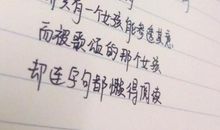 有一个女孩能考透其意
而被歌颂的那个女孩
却连字句都懒得阅读